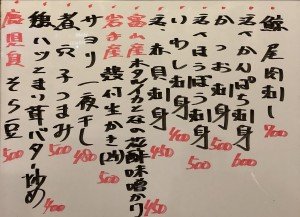 鯨尾肉刺し 700
天然かんぱち刺身 600
かつお刺身 500
天然ほうぼう刺身 500
いわし刺身 400
天然赤貝刺身 450
富山産ホタルイカとねぎの酢味噌がけ 450
岩手産殻付生かき(2ヶ) 500
サヨリ一夜干し 500
煮穴子つまみ 500
鶏ハツとまい茸バター炒め 400
鹿児島そら豆 500